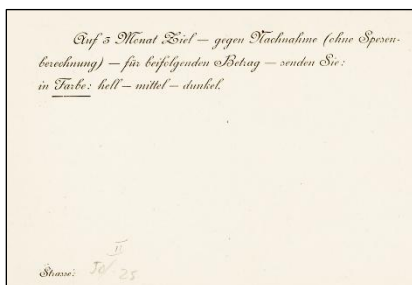 Auf 3 Monat Ziel — gegen Nachnahme (ohne Spesen-
berechnung) — für beifolgenden Betrag — senden Sie:
in Farbe: hell — mittel — dunkel.
II
50/25
Strasse: